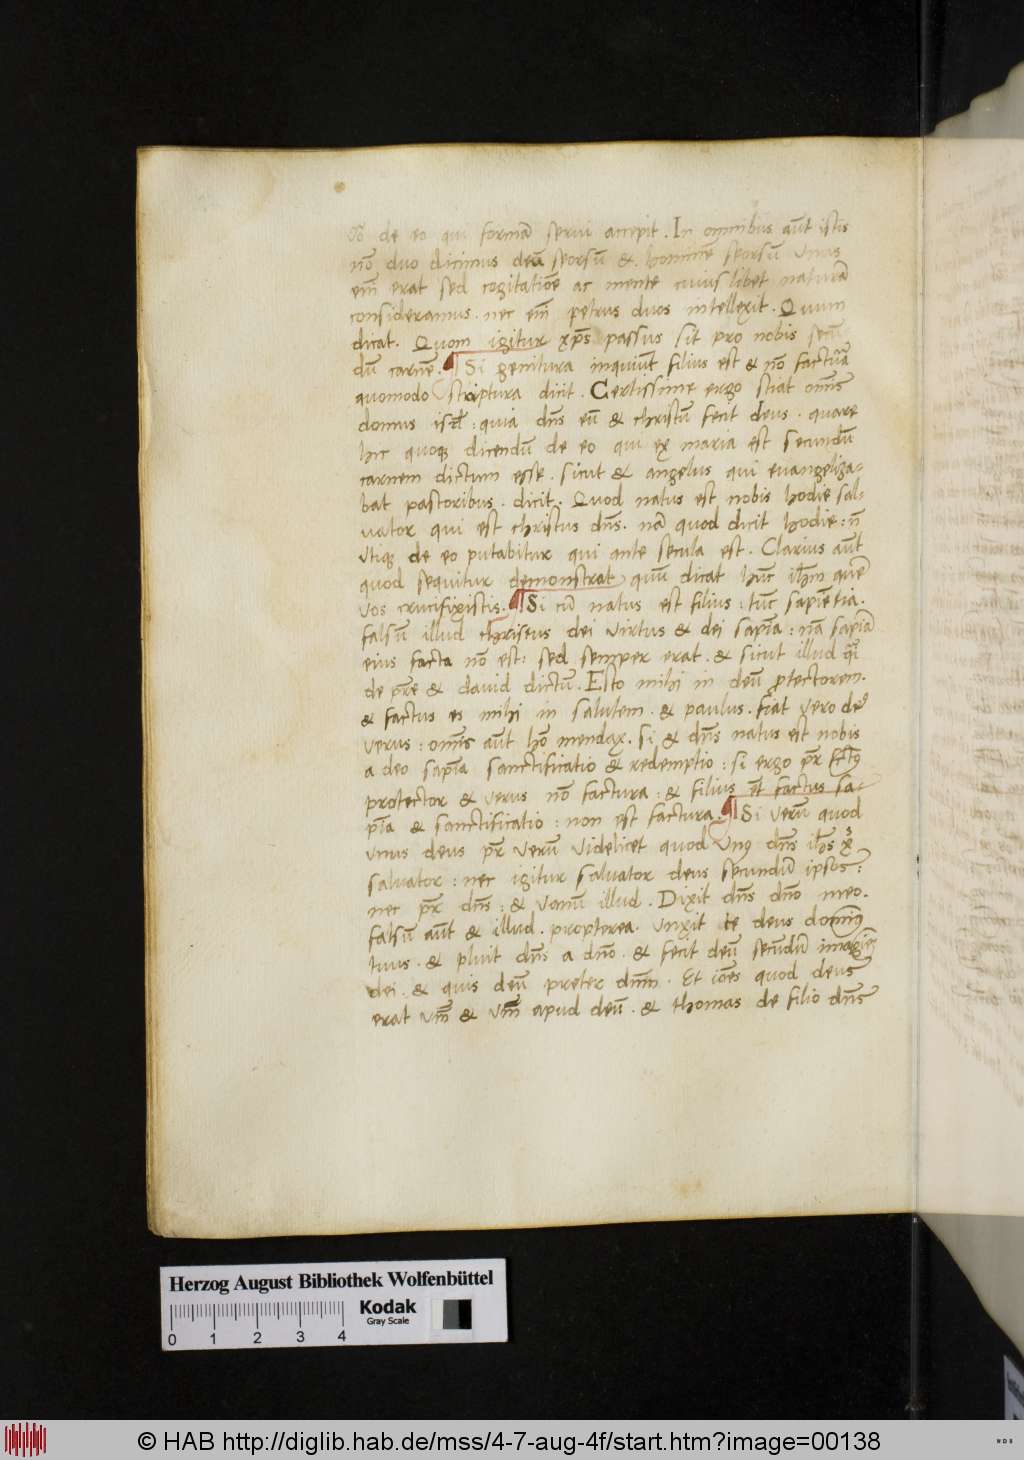 de eo qui formā servi accepit. In omnibus aūt istis
nō duo dicimus deū seorsū & hominē seorsū unus
em̄ erat sed cogitatiōe ac mente cuiuslibet naturā
consideramus. nec em̄ petrus duos intellexit. Quum
dicat. Quom igitur xp̄s passus sit pro nobis secū
dū carnē. ¶ Si genitura inquiūt filius est & nō factura
quomodo scriptura dicit. Certissime ergo sciat om̄is
domus isrl̄: quia dn̄s eū & christū fecit deus. quare
hic quoq; dicendū de eo qui ex maria est secundū
carnem dictum esse. sicut & angelus qui evangeliza-
bat pastoribus. dicit. Quod natus est nobis hodie sal-
vator qui est christus dn̄s. nā quod dicit hodie: n̄
Utiq; de eo putabitur qui ante secula est. Clarius aūt
quod sequitur demonstrat quū dicat hūc ih̄m quē
vos crucifixistis. ¶ Si cū natus est filius: tūc sapiētia.
falsū illud christus dei virtus & dei sapīa: nā sapīa
eius facta nō est: sed semper erat. & sicut illud
de pr̄e & david dictū. Esto mihi in deū protectorem.
& factus es mihi in salutem. & paulus. fiat vero de⁹
verus: om̄is aūt hō mendax. si & dn̄s natus est nobis
a deo sapīa sanctificatio & redemptio: si ergo pr̄ fct̄⁹
protector & verus nō factura: & filius et factus sa-
pīa & sanctificatio: non est factura. ¶ Si verū quod
unus deus pr̄ verū videlicet quod un⁹ dn̄s ih̄s
salvator: nec igitur salvator deus secundū ipsos:
nec pr̄ dn̄s: & vanū illud. Dixit dn̄s dn̄o meo.
falsū aūt & illud. propterea. unxit te deus
tuus. & pluit dn̄s a dn̄o. & fecit deū secūdū
dei. & quis deū preter dnm̄. Et iōes quod deus
erat um̄ & um̄ apud deū. & thomas de filio dn̄s
Herzog August Bibliothek Wolfenbüttel
0 1 2 3 4
Kodak
Gray Scale
© HAB http://diglib.hab.de/mss/4-7-aug-4f/start.htm?image=00138